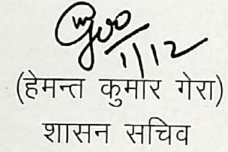 1/12
(हेमन्त कुमार गेरा)
शासन सचिव